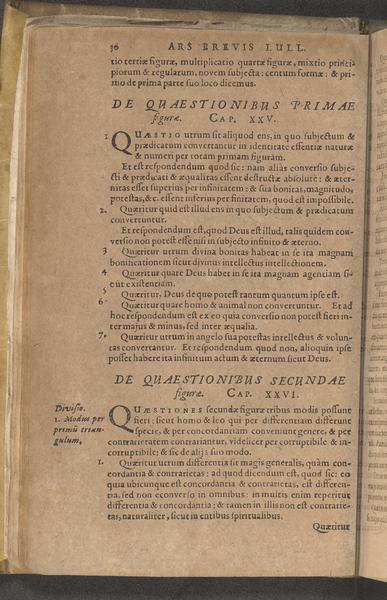 36 ARS BREVIS LULL.
tio tertiæ figuræ, multiplicatio quartæ figuræ, mixtio princi-
piorum & regularum, novem subjecta: centum formæ: & pri-
mo de prima parte suo loco dicemus.
DE QUAESTIONIBUS PRIMAE
figuræ. CAP. XXV.
1. QUÆSTIO utrum sit aliquod ens, in quo subjectum &
prædicatum convertantur in identitate essentiæ naturæ
& numeri per totam primam figuram.
Et est respondendum quod sic: nam aliàs conversio subje-
cti & prædicati & æqualitas essent destructæ absolutè: & æter-
nitas esset superius per infinitatem: & sua bonitas, magnitudo,
potestas, &c. essent inferius per finitatem, quod est impossibile.
2. Quæritur quid est illud ens in quo subjectum & prædicatum
convertuntur.
Et respondendum est, quod Deus est illud, talis quidem con-
versio non potest esse nisi in subjecto infinito & æterno.
3 Quæritur utrum divina bonitas habeat in se ita magnam
bonificationem sicut divinus intellectus intellectionem.
4 Quæritur quare Deus habet in se ita magnam agentiam si-
cut existentiam.
5 Quæritur, Deus de quo potest tantum quantum ipse est.
6 Quæritur quare homo & animal non convertuntur. Et ad
hoc respondendum est ex eo quia conversio non potest fieri in-
ter majus & minus, sed inter æqualia.
7. Quæritur utrum in angelo sua potestas intellectus & volun-
tas convertantur. Et respondendum quod non, alioquin ipse
posset habere ita infinitum actum & æternum sicut Deus.
DE QUAESTIONIBUS SECUNDAE
figuræ. CAP. XXVI.
Divisio.
1. Modus per
primũ trian-
gulum,
QUÆSTIONES secundæ figuræ tribus modis possunt
fieri: sicut homo & leo qui per differentiam differunt
specie, & per concordantiam conveniunt genere, & per
contrarietatem contrariantur, videlicet per corruptibile & in-
corruptibile; & sic de alijs suo modo.
1. Quæritur utrum differentia sit magis generalis, quàm con-
cordantia & contrarietas: ad quod dicendum est, quod sic: eo
quia ubicunque est concordantia & contrarietas, est differen-
tia, sed non econverso in omnibus: in multis enim reperitur
differentia & concordantia: & tamen in illis non est contrarie-
tas, naturaliter, sicut in entibus spiritualibus.
Quæritur